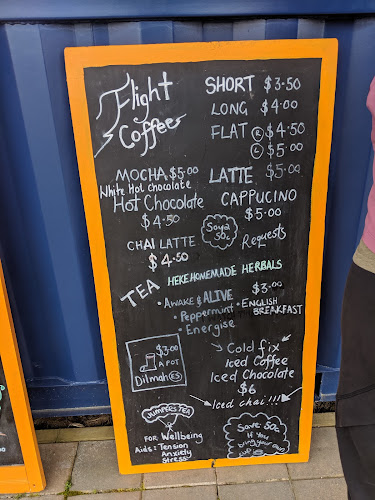 Flight
Coffee
SHORT $3.50
LONG $4.00
FLAT R $4.50
L $5.00
MOCHA $5.00
LATTE $5.00
White Hot chocolate
Hot Chocolate
$4.50
CAPPUCINO
$5.00
Soya
50c
Requests
CHAI LATTE
$4.50
HEKE HOMEMADE HERBALS
TEA
$3.00
• AWAKE & ALIVE
• ENGLISH
BREAKFAST
• Peppermint
• Energise
$3.00
A POT
Dilmah ES
Cold fix
Iced Coffee
Iced Chocolate
$6
Iced chai!!!
JUMPERS TEA
FOR Wellbeing
Aids: Tension
Anxiety
Stress
Save 50c
If You
bring your own
cup